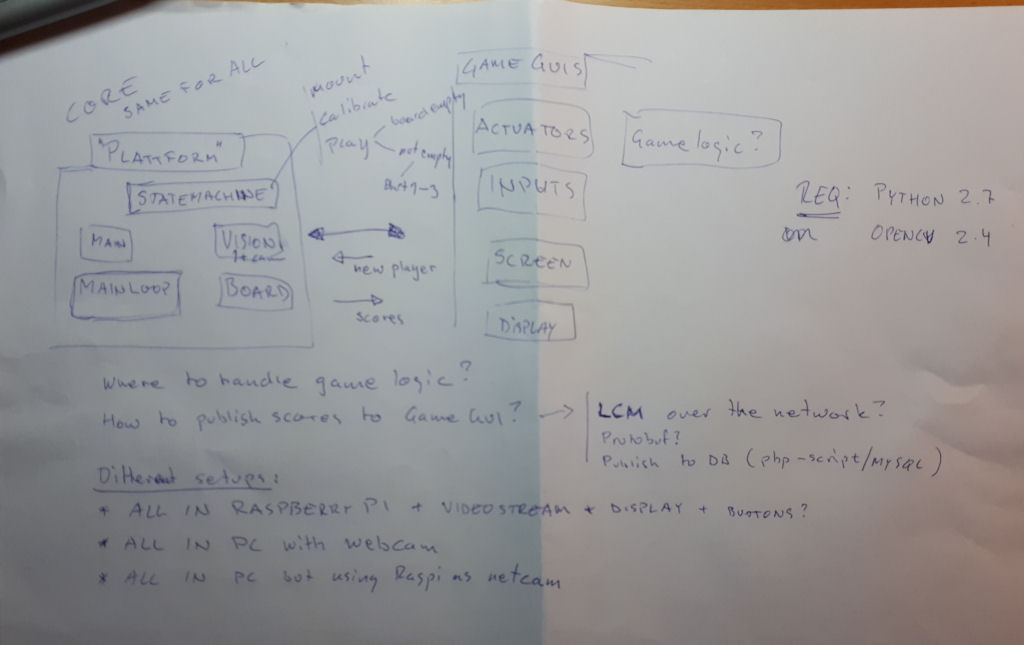 CORE
SAME FOR ALL
"PLATFORM"
STATEMACHINE
MAIN
VISION
MAINLOOP
BOARD
mount
calibrate
Play
board empty
not empty
new player
scores
GAME GUIS
ACTUATORS
INPUTS
SCREEN
DISPLAY
Game logic?
REQ: PYTHON 2.7
OPENCV 2.4
Where to handle game logic?
How to publish scores to Game GUI? -> LCM over the network?
Protobuf?
Publish to DB (php-script/MySQL)
Different setups:
* ALL IN RASPBERRY PI + VIDEOSTREAM + DISPLAY + BUTTONS?
* ALL IN PC WITH webcam
* ALL IN PC but using Raspi as netcam